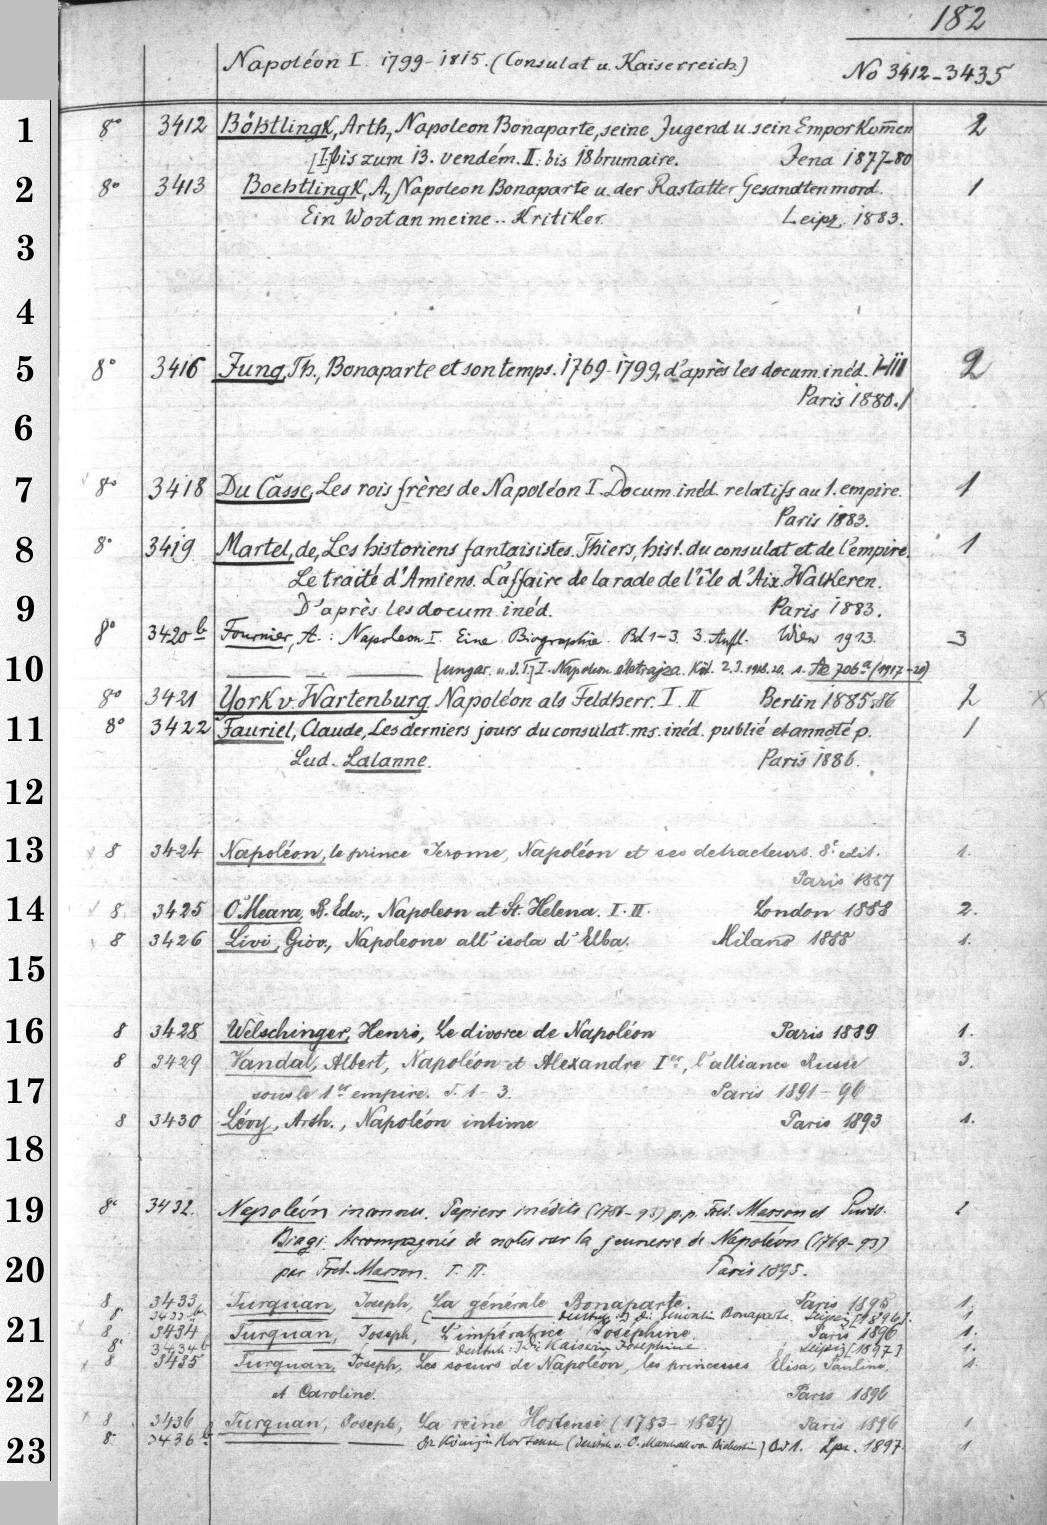 182
Napoléon I. 1799-1815. (Consulat u. Kaiserreich.) No 3412-3435
1 8° 3412 Böhtlingk, Arth., Napoleon Bonaparte, seine Jugend u. sein Emporkom̄en 2
[I] bis zum 13. vendém. II: bis 18 brumaire. Jena 1877-80
2 8° 3413 Boehtlingk, A., Napoleon Bonaparte u. der Rastatter Gesandtenmord. 1
Ein Wort an meine .. Kritiker. Leipz. 1883.
3
4
5 8° 3416 Jung, Th., Bonaparte et son temps. 1769-1799, d'après les docum. inéd. I-III 2
Paris 1880./
6
7 8° 3418 Du Casse, Les rois frères de Napoléon I. Docum. inéd. relatifs au 1. empire. 1
Paris 1883.
8 8° 3419 Martel, de, Les historiens fantaisistes. Thiers, hist. du consulat et de l'empire. 1
Le traité d'Amiens. L'affaire de la rade de l'île d'Aix. Walkeren.
9 D'après les docum. inéd. Paris 1883.
8° 3420 b Fournier, A.: Napoleon I. Eine Biographie. Bd 1-3. 3. Aufl. Wien 1913. 3
10 [ungar. u. d. T.] I. Napoleon életrajza. Köt. 2.3. 1918.20. s. Ae 706 a (1917-20)
8° 3421 York v. Wartenburg, Napoléon als Feldherr. I. II Berlin 1885.86 2 x
11 8° 3422 Fauriel, Claude, Les derniers jours du consulat. ms. inéd. publié et annoté p. 1
Lud. Lalanne. Paris 1886.
12
13 8 3424 Napoléon, le prince Jerome, Napoléon et ses detracteurs. 8e edit. 1.
Paris 1887
14 8. 3425 O'Meara, B. Edw., Napoleon at St. Helena. I. II. London 1888 2.
8 3426 Livi, Giov., Napoleone all' isola d' Elba. Milano 1888 1.
15
16 8 3428 Welschinger, Henri, Le divorce de Napoléon Paris 1889 1.
8 3429 Vandal, Albert, Napoléon et Alexandre Ier, l'alliance Russe 3.
17 sous le 1er empire. T. 1-3. Paris 1891-96
8 3430 Lévy, Arth., Napoléon intime Paris 1893 1.
18
19 8° 3432. Napoléon inconnu. Papiers inédits (1786-93) p.p. Fréd. Masson et Guido 2
Biagi. Accompagnés de notes sur la jeunesse de Napoléon (1769-93)
20 par Fréd. Masson. T. II. Paris 1895.
8 3433 Turquan, Joseph, La générale Bonaparte. Paris 1895 1.
8 3433 b [deutsch:] Die Generalin Bonaparte. Leipzig [1896]. 1
21 8 3434 Turquan, Joseph, L'impératrice Joséphine. Paris 1896 1.
8 3434 b [deutsch:] Die Kaiserin Josephine. Leipzig [1897] 1.
8 3435 Turquan, Joseph, Les soeurs de Napoléon, les princesses Elisa, Pauline, 1.
22 et Caroline. Paris 1896
8 3436 Turquan, Joseph, La reine Hortense (1783-1837) Paris 1896 1
23 8 3436 b Die Königin Hortense (deutsch v. O. Marschall von Bieberstein) Bd 1. Lpz. 1897. 1